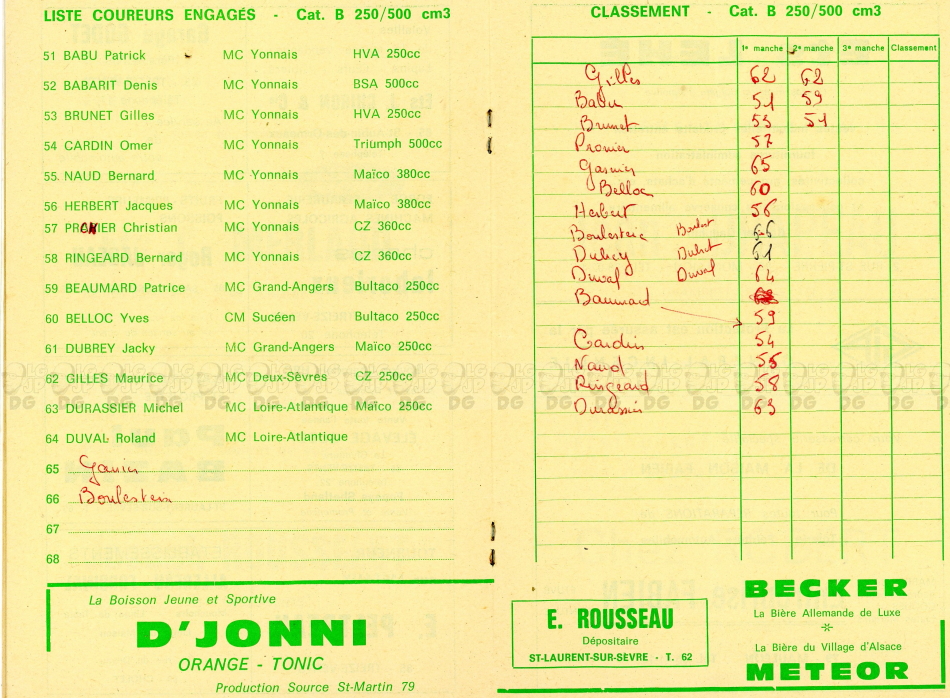 LISTE COUREURS ENGAGÉS - Cat. B 250/500 cm3
51 BABU Patrick MC Yonnais HVA 250cc
52 BABARIT Denis MC Yonnais BSA 500cc
53 BRUNET Gilles MC Yonnais HVA 250cc
54 CARDIN Omer MC Yonnais Triumph 500cc
55. NAUD Bernard MC Yonnais Maïco 380cc
56 HERBERT Jacques MC Yonnais Maïco 380cc
57 Christian MC Yonnais CZ 360cc
58 RINGEARD Bernard MC Yonnais CZ 360cc
59 BEAUMARD Patrice MC Grand-Angers Bultaco 250cc
60 BELLOC Yves CM Sucéen Bultaco 250cc
61 DUBREY Jacky MC Grand-Angers Maïco 250cc
62 GILLES Maurice MC Deux-Sèvres CZ 250cc
63 DURASSIER Michel MC Loire-Atlantique Maïco 250cc
64 DUVAL Roland MC Loire-Atlantique
65
66
67
68
La Boisson Jeune et Sportive
D'JONNI
ORANGE - TONIC
Production Source St-Martin 79
CLASSEMENT - Cat. B 250/500 cm3
1e manche 2e manche 3e manche Classement
Gilles 62 62
Babu 51 59
Brunet 53 51
57
65
Belloc 60
Herbert 56
66
61
Duval Duval 64
59
54
Naud 55
Ringeard 58
63
E. ROUSSEAU
Dépositaire
ST-LAURENT-SUR-SÈVRE - T. 62
BECKER
La Bière Allemande de Luxe
La Bière du Village d'Alsace
METEOR